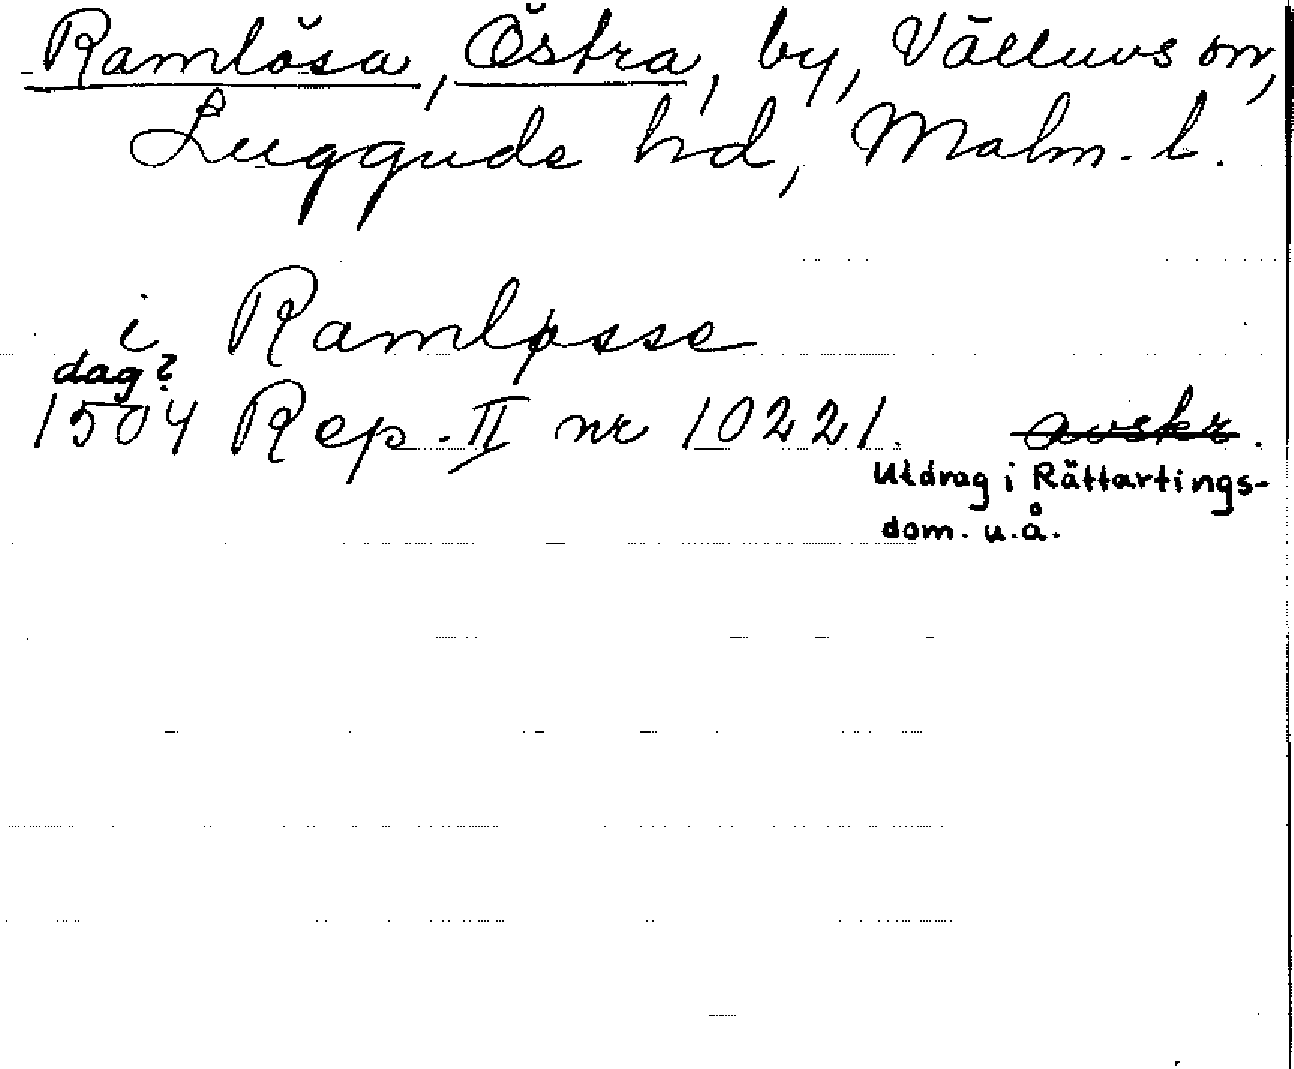 Ramlösa, Östra, by, Välluvs sn,
Luggude hd, Malm. l.
i Ramløsse
dag?
1504 Rep. II nr 10221. avskr.
Utdrag i Rättartings-
dom. u.å.